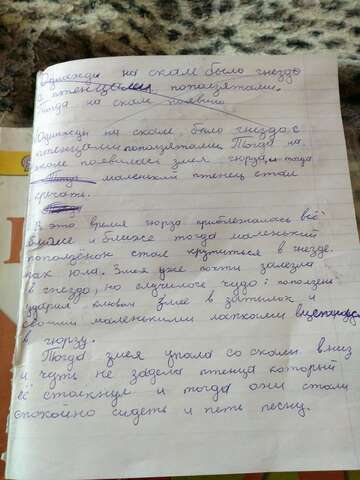 Однажды на скам было гнездо
с птенцами, поползятами.
Тогда на скам появиша
Однажды на скале, было гнездо с
птенцами поползятами Тогда на
скале появилась змея гюрза, и тогда
маленький птенец стал
кричать.
В это время гюрза приближалась всё
ближе и ближе тогда маленький
поползёнок стал крутиться в гнезде
как юла. Змея уже почти залезла
в гнездо, но случилось чудо: поползень
ударил клювом змее в затылок и
своими маленькими лапками вцепился
в гюрзу.
Тогда змея упала со скалы вниз
и чуть не задела птенца который
её столкнул и тогда они стали
спокойно сидеть и петь песну.